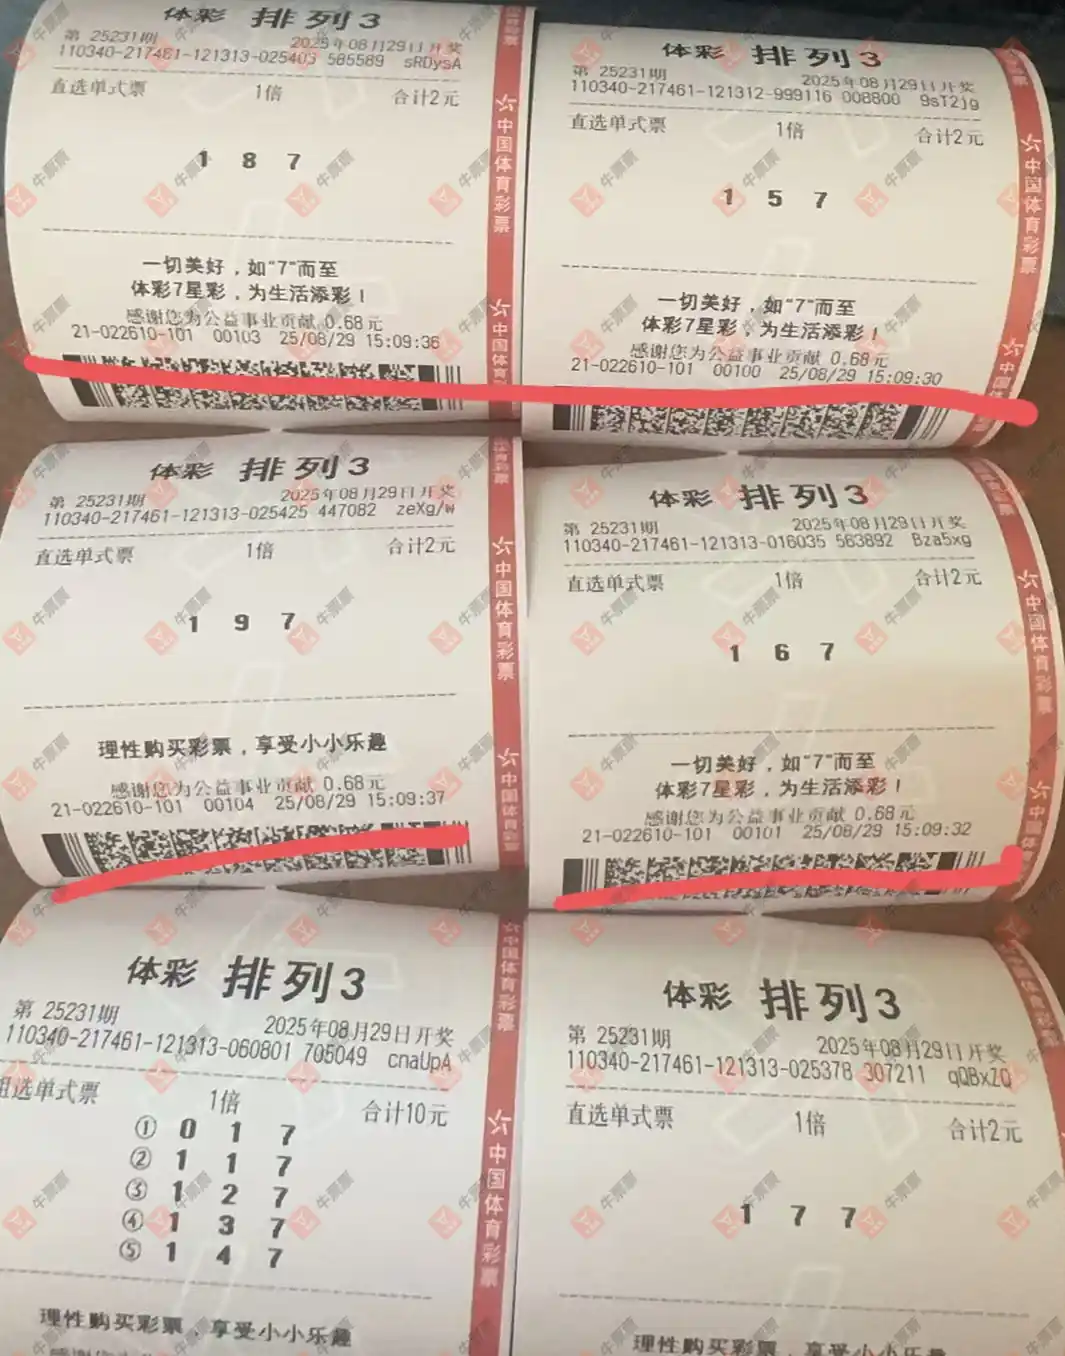 体彩 排列3
第 25231期 2025年08月29日开奖
110340-217461-121313-025403 585589 sRDysA
直选单式票 1倍 合计2元
1 8 7
一切美好，如"7"而至
体彩7星彩，为生活添彩！
感谢您为公益事业贡献 0.68元
21-022610-101 00103 25/08/29 15:09:36
中国体育彩票
体彩 排列3
第 25231期 2025年08月29日开奖
110340-217461-121312-999116 008800 9sT2jg
直选单式票 1倍 合计2元
1 5 7
一切美好，如"7"而至
体彩7星彩，为生活添彩！
感谢您为公益事业贡献 0.68元
21-022610-101 00100 25/08/29 15:09:30
中国体育彩票
体彩 排列3
第 25231期 2025年08月29日开奖
110340-217461-121313-025425 447082 zeXg/w
直选单式票 1倍 合计2元
1 9 7
理性购买彩票，享受小小乐趣
感谢您为公益事业贡献 0.68元
21-022610-101 00104 25/08/29 15:09:37
中国体育彩票
体彩 排列3
第 25231期 2025年08月29日开奖
110340-217461-121313-016035 563892 Bza5xg
直选单式票 1倍 合计2元
1 6 7
一切美好，如"7"而至
体彩7星彩，为生活添彩！
感谢您为公益事业贡献 0.68元
21-022610-101 00101 25/08/29 15:09:32
中国体育彩票
体彩 排列3
第 25231期 2025年08月29日开奖
110340-217461-121313-060801 705049 cnaUpA
组选单式票 1倍 合计10元
① 0 1 7
② 1 1 7
③ 1 2 7
④ 1 3 7
⑤ 1 4 7
理性购买彩票，享受小小乐趣
中国体育彩票
体彩 排列3
第 25231期 2025年08月29日开奖
110340-217461-121313-025378 307211 qQBxZQ
直选单式票 1倍 合计2元
1 7 7
理性购买彩票，享受小小乐趣
牛票票